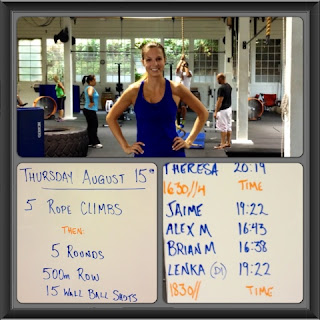 THURSDAY AUGUST 15th
5 ROPE CLIMBS
THEN:
5 ROUNDS
500m ROW
15 WALL BALL SHOTS
THERESA 20:19
1630//4 TIME
JAIME 19:22
ALEX M 16:43
BRIAN M 16:38
LENKA (DI) 19:22
1830// TIME